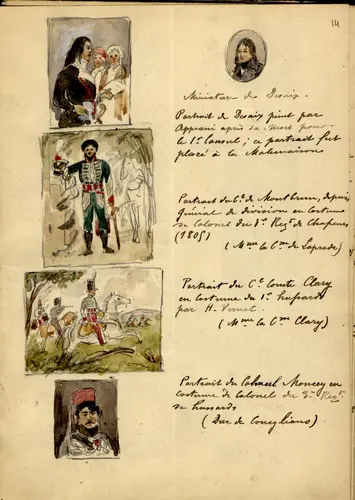 14
Miniature de Desaix.
Portrait de Desaix peint par
Appiani après sa mort pour
le 1er Consul ; ce portrait fut
placé à la Malmaison
Portrait du Cel de Montbrun, depuis
Général de division en costume
de Colonel du 1er Regt de Chasseurs
(1805)
(Mme la Csse de Laprade)
Portrait du Cel Comte Clary
en costume du 1er hussards
par H. Vernet.
(Mme la Csse Clary)
Portrait du Colonel Moncey en
costume de Colonel du 3me Regt
de hussards
(Duc de Conegliano)